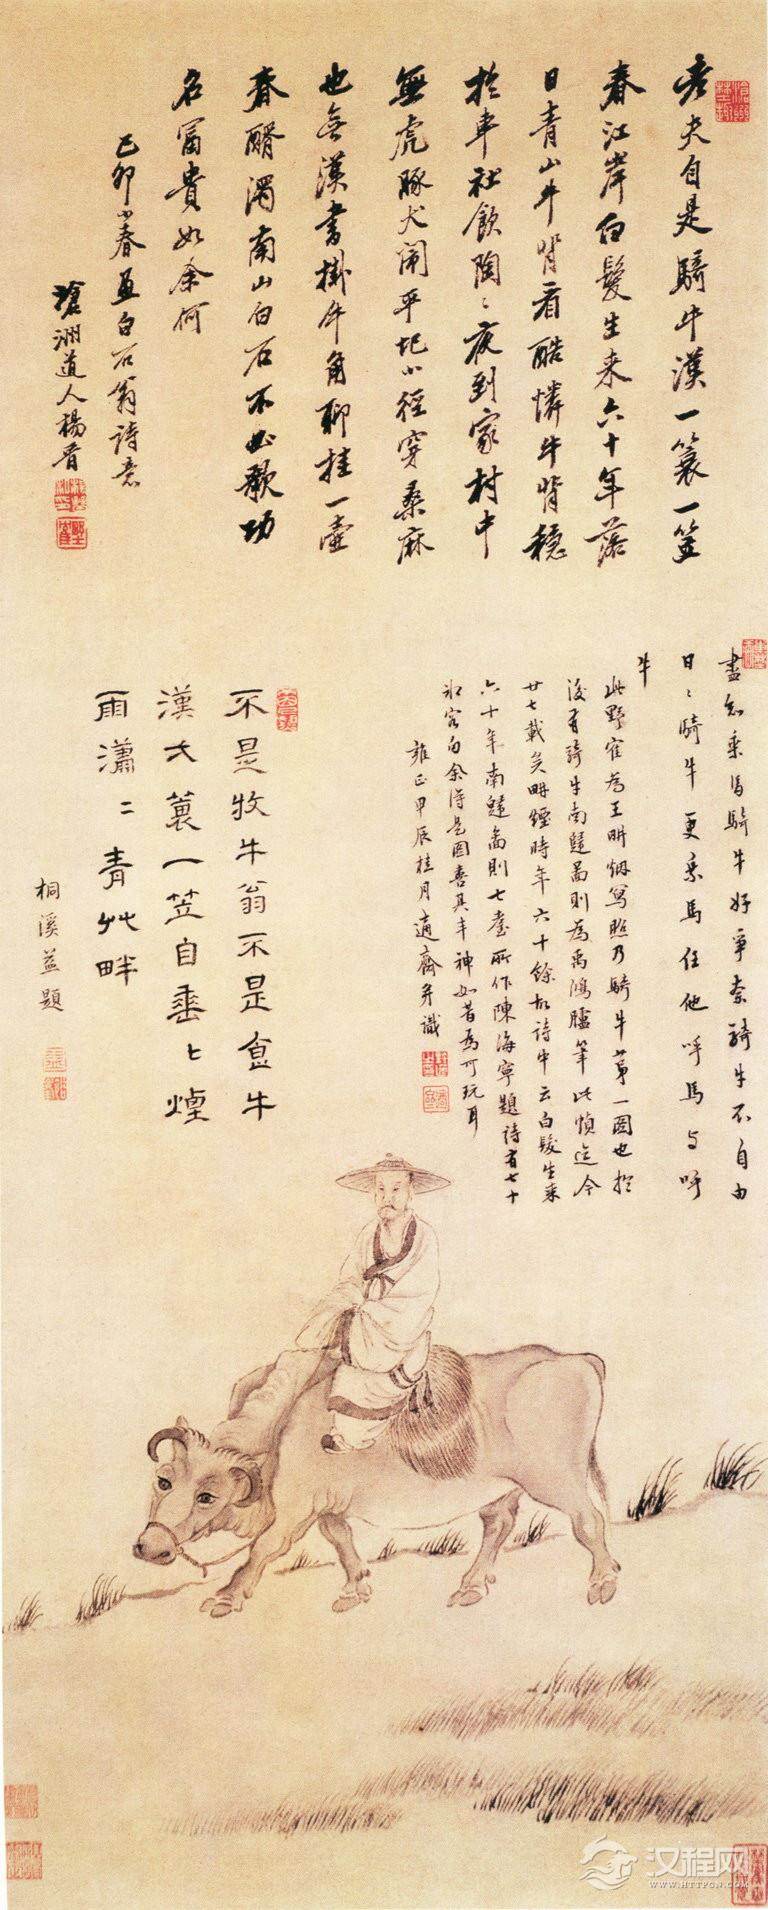 老夫自是騎牛漢一蓑一笠
春江岸白髮生来六十年落
日青山牛背看酷憐牛背穩
於車社飲陶〻夜到家村中
無虎豚犬鬧平圯小徑穿桑麻
也無漢書掛牛角聊挂一壺
春醑濁南山白石不必歌功
名富貴如余何
己卯小春畫白石翁詩意
滄洲道人楊晉
盡知乗馬騎牛好爭奈騎牛不自由
日〻騎牛更乗馬任他呼馬与呼
牛
此野隺為王畊烟寫照乃騎牛苐一圖也於
後有騎牛南還圖則為禹鴻臚筆此幀迄今
廿七載矣畊煙時年六十餘故詩中云白髮生来
六十年南還圖則七耋所作陳海寧題詩有七十
客句余得是圖喜其丰神如昔為可玩耳
雍正甲辰桂月適齋并識
不是牧牛翁不是飯牛
漢大蓑一笠自垂〻煙
雨瀟〻青艸畔
桐溪益題
汉程网
WWW.HTTPCN.COM